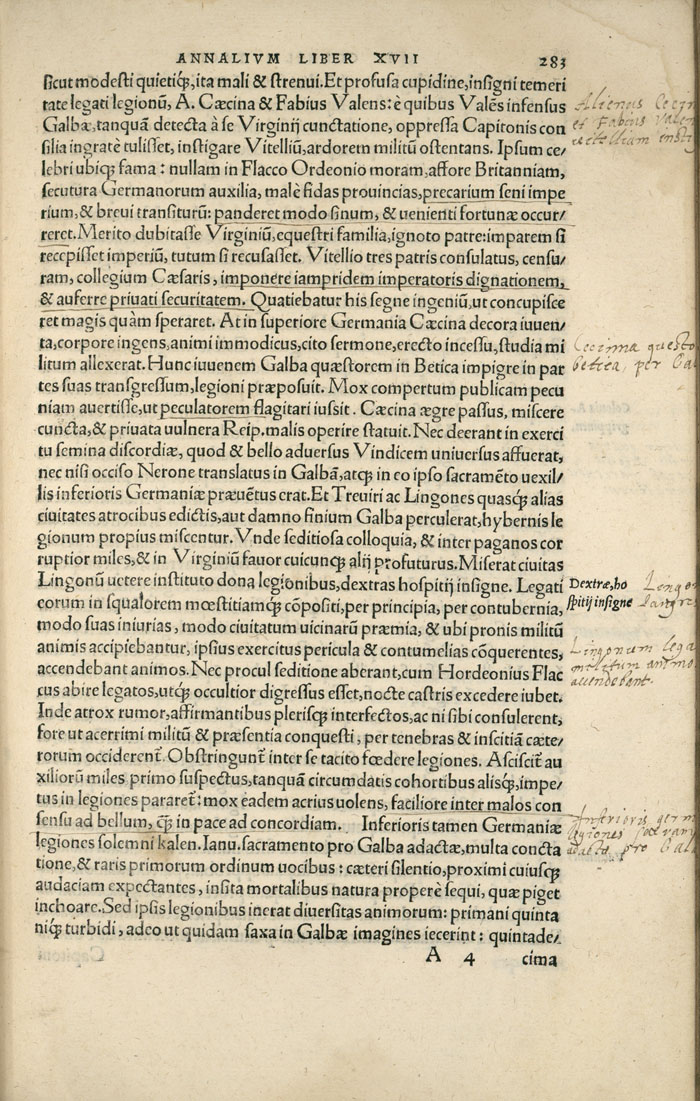 ANNALIVM LIBER XVII 283
sicut modesti quietiq́;, ita mali & strenui. Et profusa cupidine, insigni temeri
tate legati legionũ, A. Cæcina & Fabius Valens: è quibus Valẽs infensus
Galbæ, tanquã detecta à se Virginij cunctatione, oppressa Capitonis con
silia ingratè tulisset, instigare Vitelliũ, ardorem militũ ostentans. Ipsum ce/
lebri ubiq; fama: nullam in Flacco Ordeonio moram, affore Britanniam,
secutura Germanorum auxilia, malè fidas prouincias, precarium seni impe
rium, & breui transiturũ: panderet modo sinum, & uenienti fortunæ occur/
reret. Merito dubitasse Virginiũ, equestri familia, ignoto patre: imparem si
recepisset imperiũ, tutum si recusasset. Vitellio tres patris consulatus, censu/
ram, collegium Cæsaris, imponere iampridem imperatoris dignationem,
& auferre priuati securitatem. Quatiebatur his segne ingeniũ, ut concupisce
ret magis quàm speraret. At in superiore Germania Cæcina decora iuuen/
ta, corpore ingens, animi immodicus, cito sermone, erecto incessu, studia mi
litum allexerat. Hunc iuuenem Galba quæstorem in Betica impigre in par
tes suas transgressum, legioni præposuit. Mox compertum publicam pecu
niam auertisse, ut peculatorem flagitari iussit. Cæcina ægre passus, miscere
cuncta, & priuata uulnera Reip. malis operire statuit. Nec deerant in exerci
tu semina discordiæ, quod & bello aduersus Vindicem uniuersus affuerat,
nec nisi occiso Nerone translatus in Galbã, atq; in eo ipso sacramẽto uexil/
lis inferioris Germaniæ præuẽtus erat. Et Treuiri ac Lingones quasq́; alias
ciuitates atrocibus edictis, aut damno finium Galba perculerat, hybernis le
gionum propius miscentur. Vnde seditiosa colloquia, & inter paganos cor
ruptior miles, & in Virginiũ fauor cuicunq; alij profuturus. Miserat ciuitas
Lingonũ uetere instituto dona legionibus, dextras hospitij insigne. Legati
eorum in squalorem mœstitiamq́; cõpositi, per principia, per contubernia,
modo suas iniurias, modo ciuitatum uicinarũ præmia, & ubi pronis militũ
animis accipiebantur, ipsius exercitus pericula & contumelias cõquerentes,
accendebant animos. Nec procul seditione aberant, cum Hordeonius Flac
cus abire legatos, utq́; occultior digressus esset, nocte castris excedere iubet.
Inde atrox rumor, affirmantibus plerisq; interfectos, ac ni sibi consulerent,
fore ut acerrimi militũ & præsentia conquesti, per tenebras & inscitiã cæte/
rorum occiderent̃. Obstringunt̃ inter se tacito fœdere legiones. Asciscit̃ au
xiliorũ miles primo suspectus, tanquã circumdatis cohortibus alisq;, impe/
tus in legiones pararet̃: mox eadem acrius uolens, faciliore inter malos con
sensu ad bellum, q̃; in pace ad concordiam. Inferioris tamen Germaniæ
legiones solemni kalen. Ianu. sacramento pro Galba adactæ, multa concta
tione, & raris primorum ordinum uocibus: cæteri silentio, proximi cuiusq;
audaciam expectantes, insita mortalibus natura properè sequi, quæ piget
inchoare. Sed ipsis legionibus inerat diuersitas animorum: primani quinta
niq́; turbidi, adeo ut quidam saxa in Galbæ imagines iecerint: quintade/
A 4 cima
Alienus
et Fabius
Dextræ, ho
spitij insigne
Lingonum
militum animo
accendebant.
Inferioris
legiones
pro